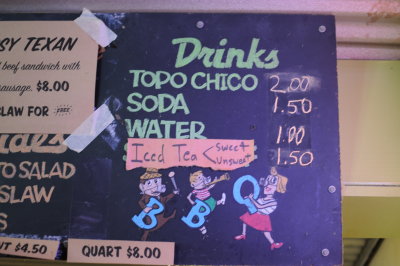 SY TEXAN
beef sandwich with
sausage. $8.00
SLAW FOR FREE
TO SALAD
SLAW
$4.50
QUART $8.00
Drinks
TOPO CHICO 2.00
SODA 1.50
WATER 1.00
Iced Tea < Sweet
Unsweet 1.50
BBQ